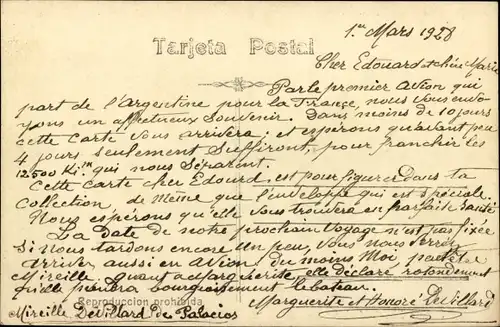 1er Mars 1928
Tarjeta Postal
Cher Edouard et chère Marie
Par le premier avion qui
part de l'Argentine pour la France, nous vous envo-
yons un affectueux souvenir. Dans moins de 10 jours
cette carte vous arrivera; et espirons qu'avant peu
4 jours seulement suffiront, pour franchir les
12500 Ki.m qui nous séparent.
Cette carte cher Edourd, est pour figurer dans ta
collection, de meme que l'enveloppe qui est spéciale.
Nous espérons qu'elle vous trouvera en parfaite santé
La date de notre prochain voyage n'est pas fixée
Si nous tardons encore un peu, vous nous verrez
arriver aussi en avion du moins moi peut-être
Mireille quant a Marguerite elle déclare rotondement
qu'elle prendra bourgeoisement le bateau.
Reproduccion prohibida
Marguerite et Honoré DeVillard
Mireille DeVillard de Palacios